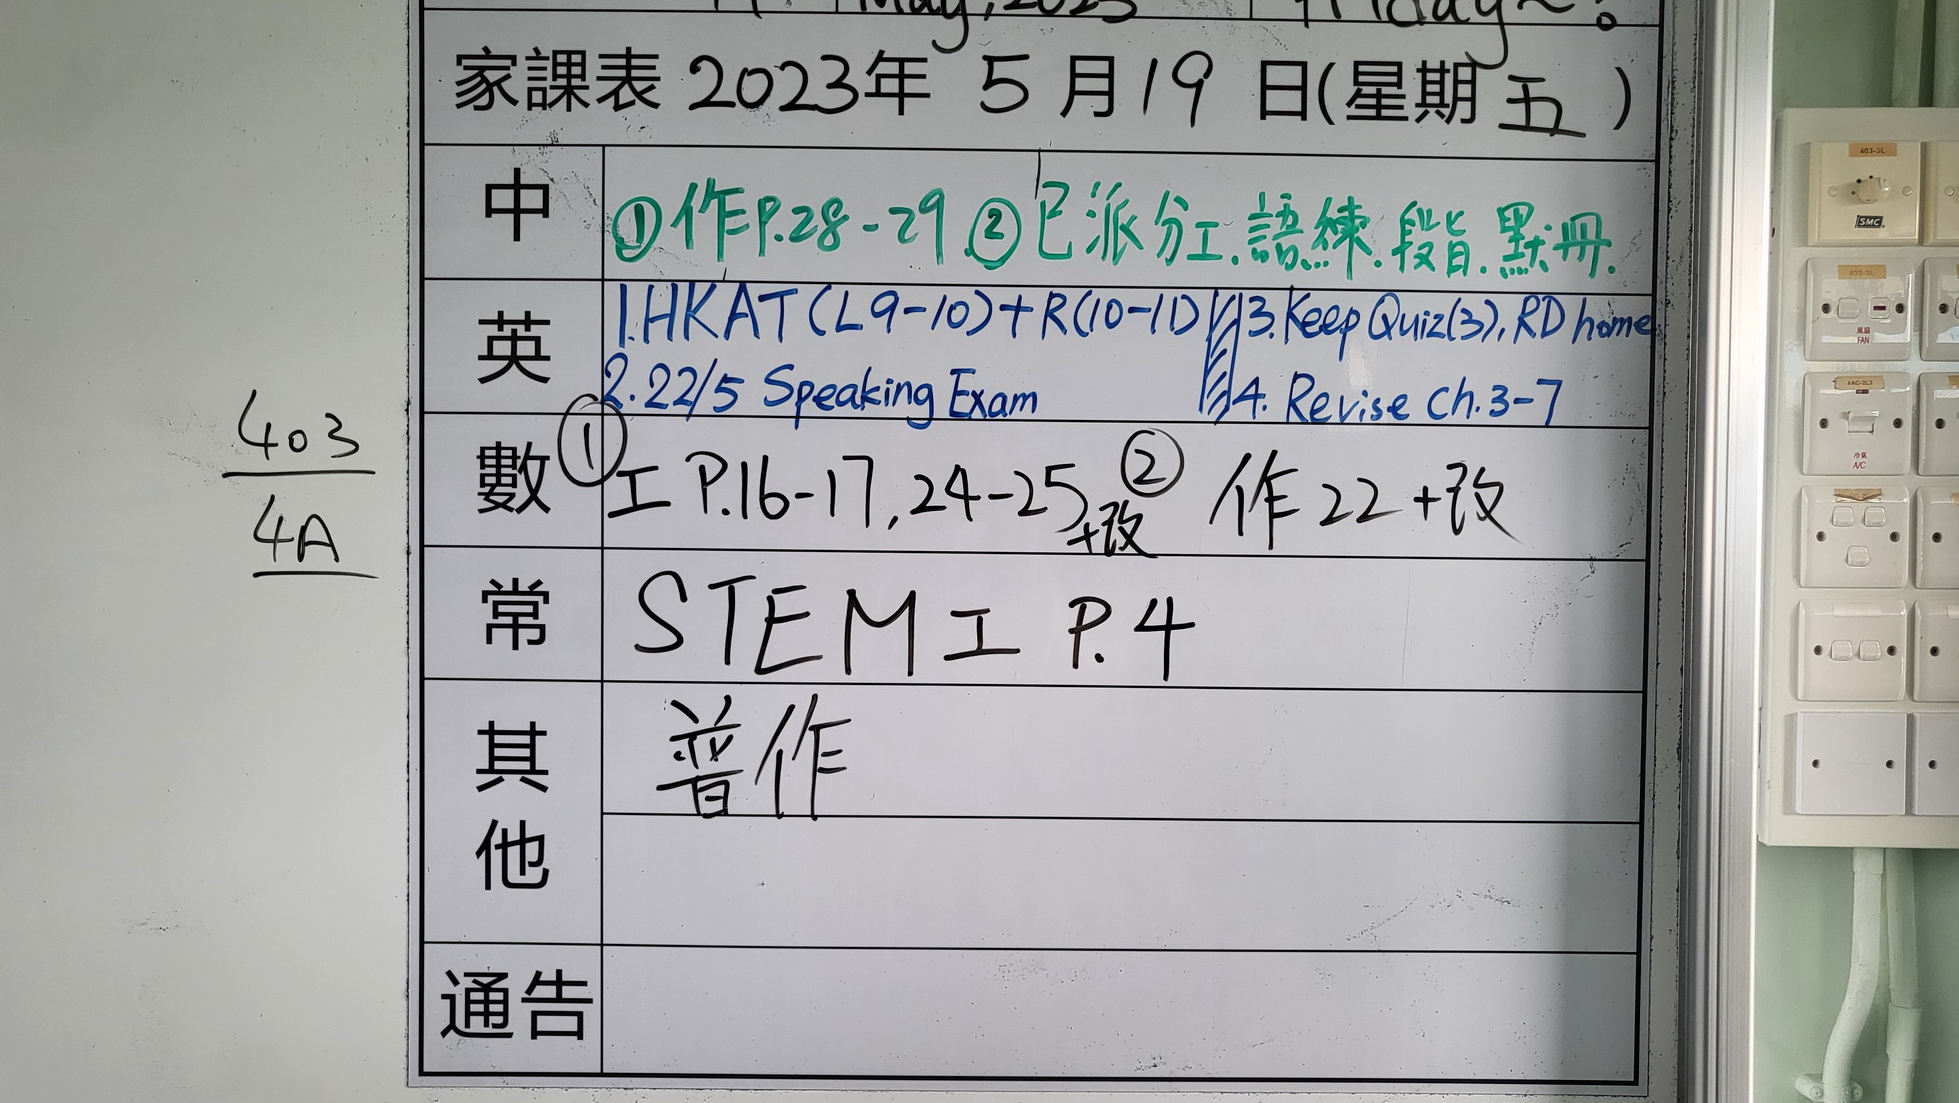 May, 2023 Friday~!
家課表 2023年 5月19日(星期五)
中 ①作P.28-29 ②已派分工.語練.段旨.默冊.
英 1.HKAT(L9-10)+R(10-11) 3.Keep Quiz(3), RD home
2.22/5 Speaking Exam 4. Revise Ch.3-7
數 ①工P.16-17,24-25+改 ②作22+改
403
4A
常 STEM工 P.4
其他 普作
通告
403-3L
SMC
403-3L
風扇
FAN
4AC-2L3
冷氣
A/C